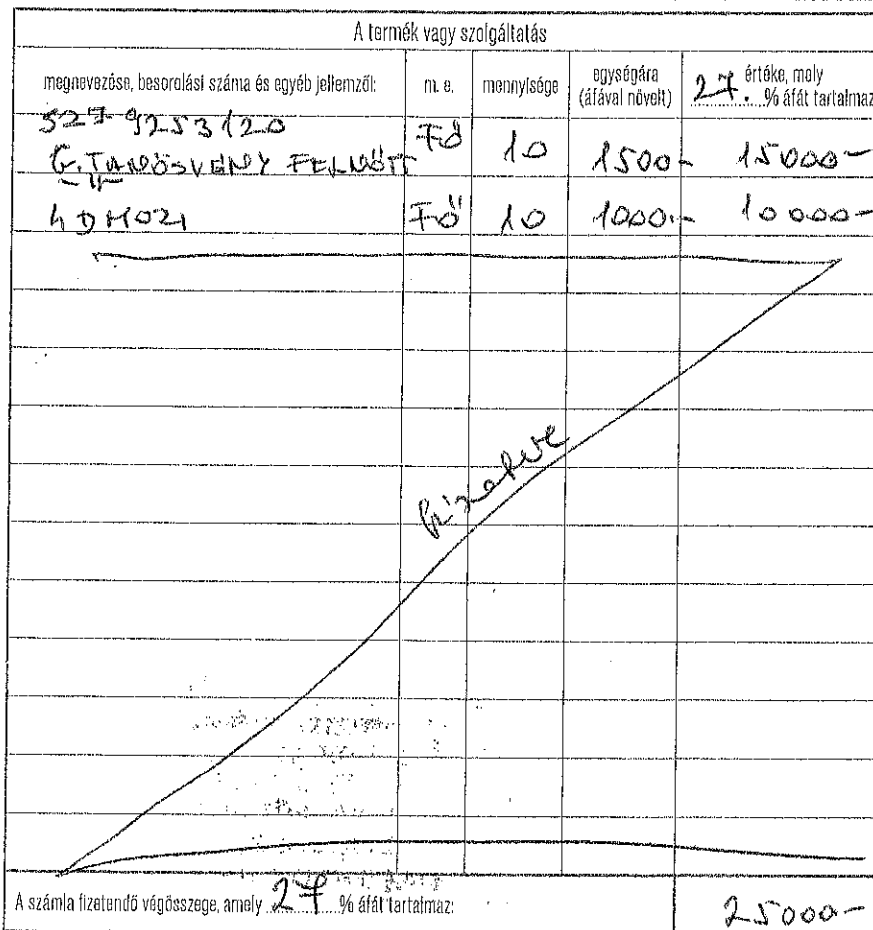 A termék vagy szolgáltatás
megnevezése, besorolási száma és egyéb jellemzői: m. e. mennyisége egységára (áfával növelt) 27. értéke, mely % áfát tartalmaz
527 9253120
G. TANÖSVÉNY FELNŐTT Fő 10 1500- 15000-
-"-
Fő 10 1000.- 10000-
fizetve
A számla fizetendő végösszege, amely 27 % áfát tartalmaz: 25000-